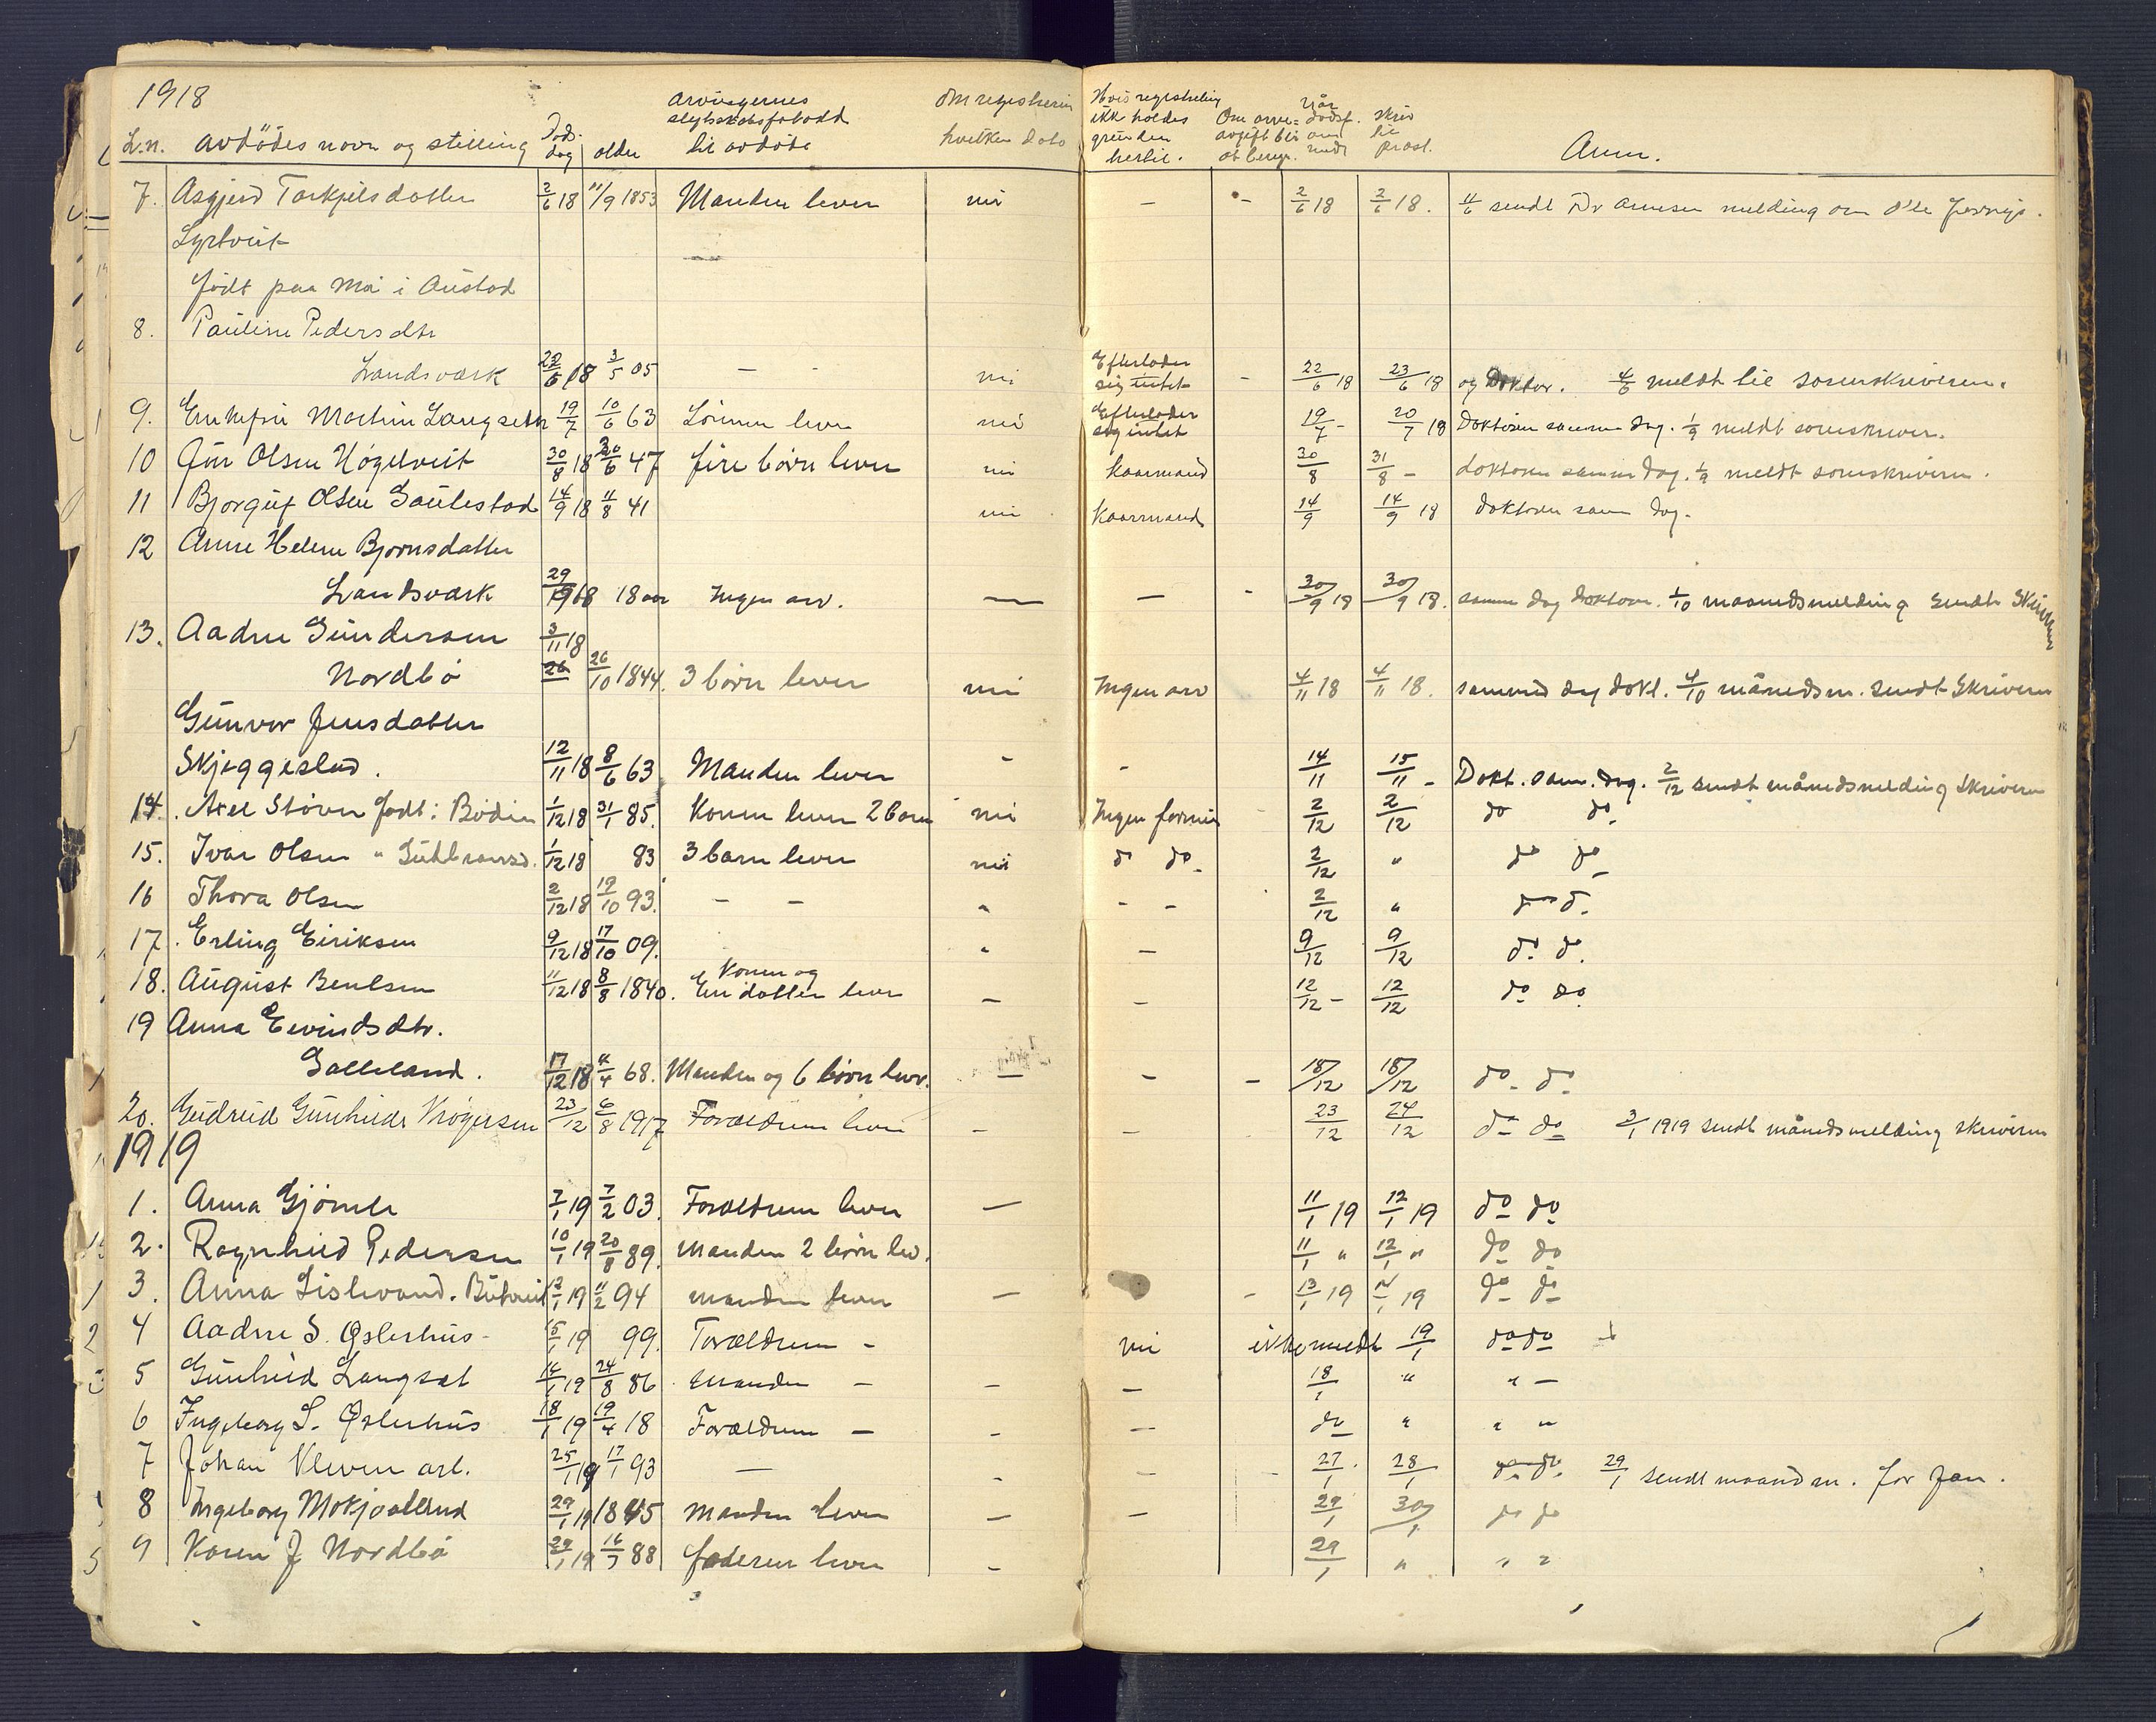 1918
L.n. avdödes navn og stilling Döds. dag alder arvingernes slegtskabsforhold til avdöde Om registrering hvilken dato Hvis registrering ikke holdes grunden hertil. Om arve= avgift bli at beregn. Når dödsf. anmeldt skriv til prost. Anm.
7. Asgjerd Torkjelsdatter 2/6 18 11/9 1853 Manden lever nei — - 2/6 18 2/6 18. 4/6 sendt Dr Arnesen melding om
Lyrtveit
födt paa Moi i Austad
8. Pauline Pedersdtr
Landsværk 22/6 18 3/5 05 — - nei Efterlader sig intet - 22/6 18 23/6 18 og Doktor. 4/6 meldt til sorenskriveren.
9. Enkefru Martin Langseth 19/7 10/6 63 Sönnen lever nei Efterlader sig intet 19/7 - 20/7 18 Doktoren samme dag. 1/9 meldt sorenskriver.
10 Jon Olsen Högetveit 30/8 18 20/6 47 fire börn lever nei kaarmand 30/8 31/8 - doktoren samme dag. 1/9 meldt sorenskriveren.
11 Bjorguf Olsen Saulestad 14/9 18 11/8 41 nei Kaarmand 14/9 14/9 18 doktoren sam dag.
12 Anne Helene Bjornsdatter
Landsværk 29/9 18 18 aar Ingen arv. — — - 30/9 18 30/9 18. samme dag doktoren. 1/10 maanedsmelding sendt Skriveren
13. Aadne Gundersen 3/11 18
Nordbö 26 26/10 1844. 3 börn lever nei Ingen arv 4/11 18 4/11 18. samme dag dokt. 4/10 månedsm. sendt Skriveren
Gunvor Jensdatter
Skjeggestad. 12/11 18 8/6 63 Manden lever - - 14/11 15/11 - Dokt. sam. dag. 2/12 sendt månedsmelding skriveren
14. Axel Stöver födt: Bodin 1/12 18 31/1 85. Konen lever 2 barn nei Ingen formue 2/12 2/12 do do.
15. Ivar Olsen " Gudbransd. 1/12 18 83 3 barn lever nei do do. 2/12 " do do
16 Thora Olsen 2/12 18 19/10 93. - - " - - 2/12 " do d.
17. Erling Eiriksen 9/12 18 17/10 09. " — 9/12 9/12 do do.
18. August Bentsen 11/12 18 8/8 1840. Konen og En datter lever — — 12/12 - 12/12 do do
19 Anna Eevindsdtr.
Galleland. 17/12 18 4/4 68. Manden og 6 börn lever. — — - 18/12 18/12 do do.
20. Gudrud Gunhilde Krögersen 23/12 6/8 1917 Forældrene lever — — 23/12 24/12 do do 3/1 1919 sendt månedsmelding skriveren
1919
1. Anna Gjömle 7/1 19 7/2 03. Forældrene lever — 11/1 19 12/1 19 do do
2. Ragnhild Pedersen 10/1 19 20/8 89. manden 2 börn lev. 11/1 " 12/1 " do do
3. Anna Lislevand. 12/1 19 11/2 94 manden lever — - 13/1 19 14/1 19 do do
4 Aadne S. Østerhus - 15/1 19 99. Forældrene - nei ikke meldt 19/1 do do
5 Gunhild Langset 16/1 19 24/8 86 manden — — — 18/1 " " —
6 Ingeborg S. Østerhus 18/1 19 19/4 18 Forældrene — - — do " " "
7 Johan Kleven arb. 25/1 19 17/1 93 — - - - 27/1 28/1 do do. 29/1 sendt maandsm. for Jan.
8 Ingeborg Mokjaaland 29/1 19 1845 manden lever — — 29/1 30/1 do do
9 Karen J Nordbö 29/1 19 16/7 88 faderen lever - 29/1 " " "